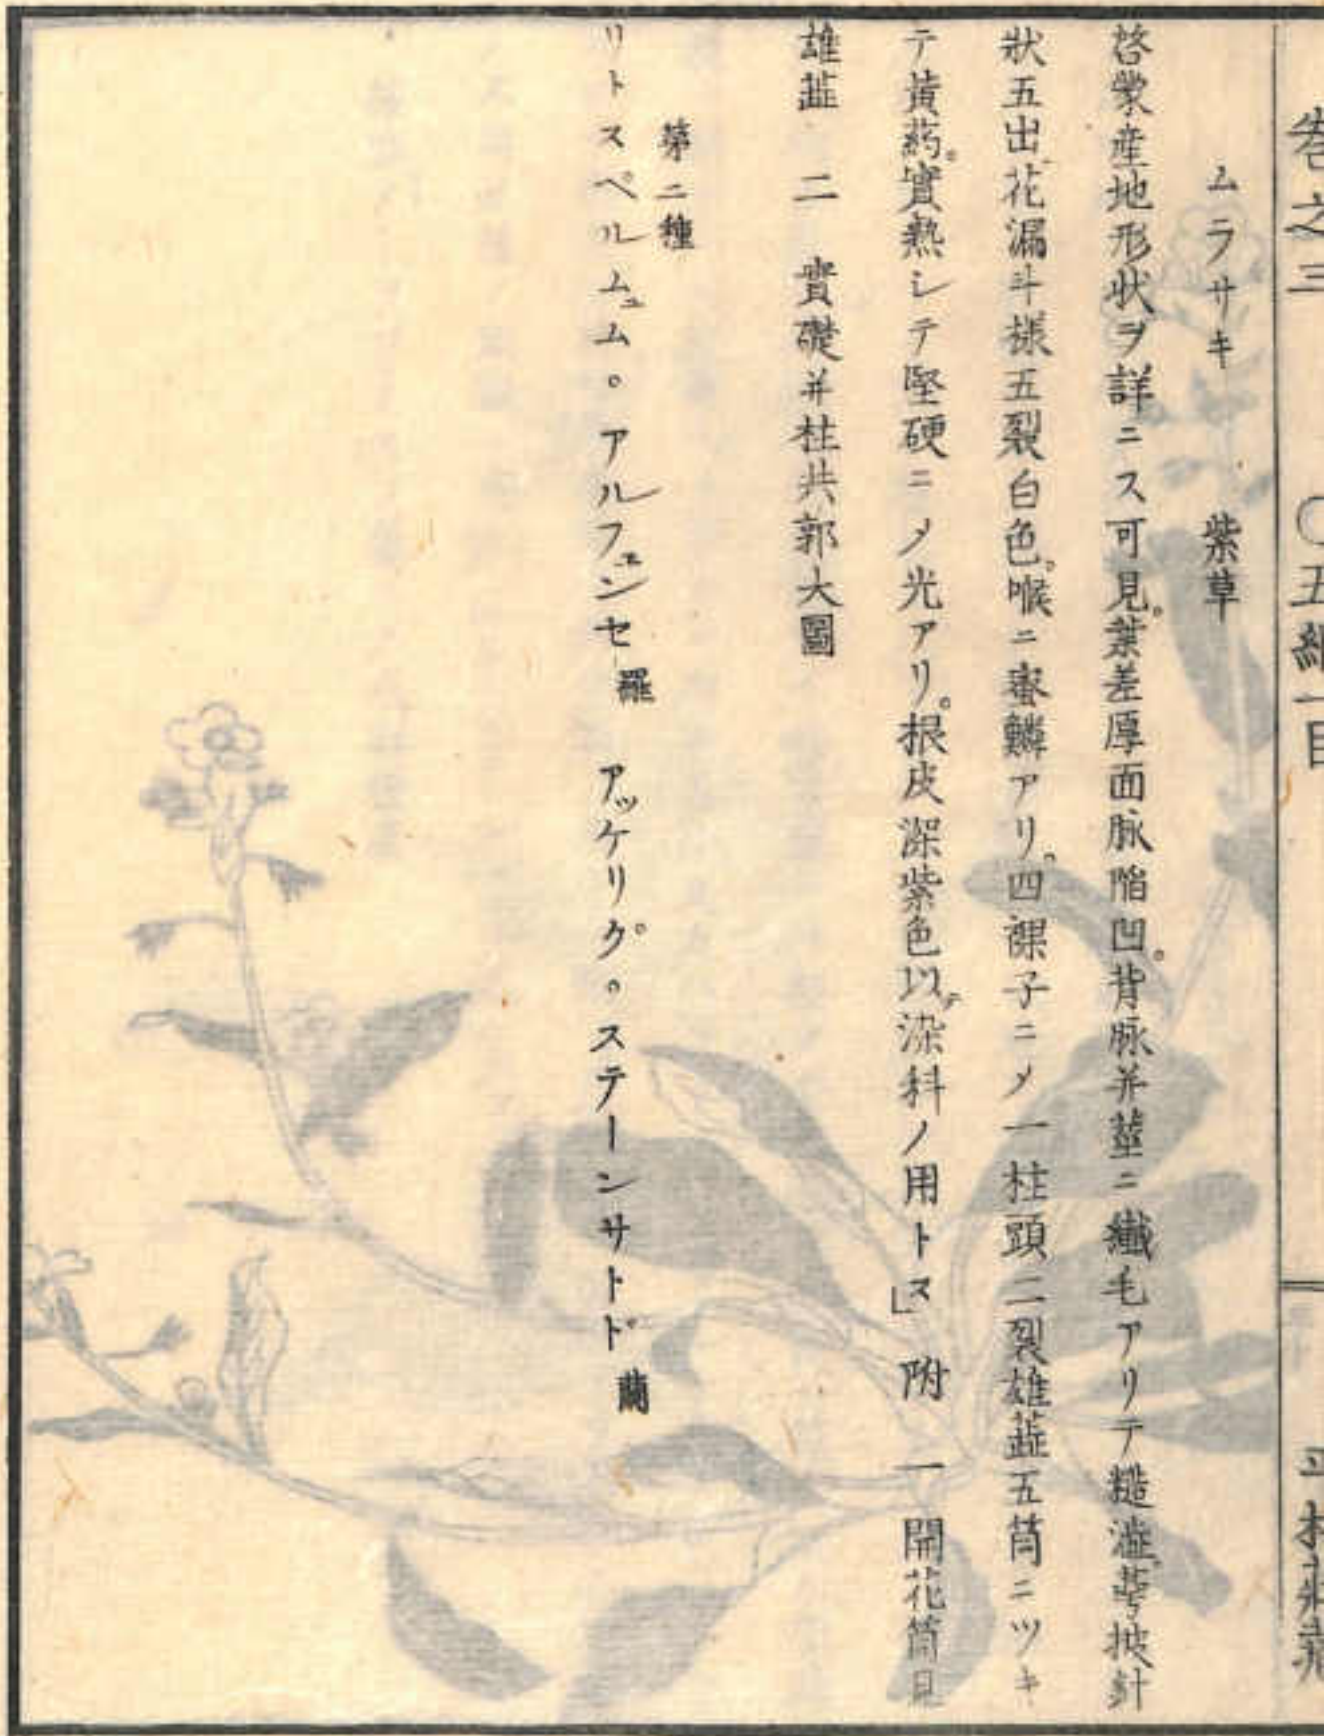 巻之三 〇五綱一目
ムラサキ 紫草
啓蒙産地形状ヲ詳ニス可見。葉差厚面脉陷凹。背脉并莖ニ纎毛アリテ糙澁。萼披針
狀五出花漏斗様五裂白色。喉ニ蜜鱗アリ。四裸子ニメ一柱頭二裂雄蘂五筒ニツキ
テ黄葯。實熟シテ堅硬ニメ光アリ。根皮深紫色以テ染料ノ用トス」附 一開花筒見
雄蘂 二 實礎并柱共郭大圖
第二種
リトスペルムュム。アルフェンセ 羅 アッケリク。ステーンサトド 蘭